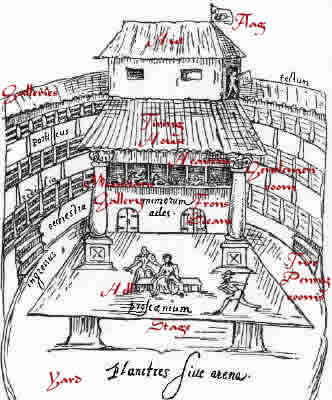 Flag
Hut
tectum
Galleries
porticus
Tiring
House
Heavens
Gentlemen
rooms
sedilia
Gallery
mimorum
ædes.
Frons
orchestra
ingressus
Two
Penny
rooms
Hell
proscænium
Stage
Planities sive arena.
Yard